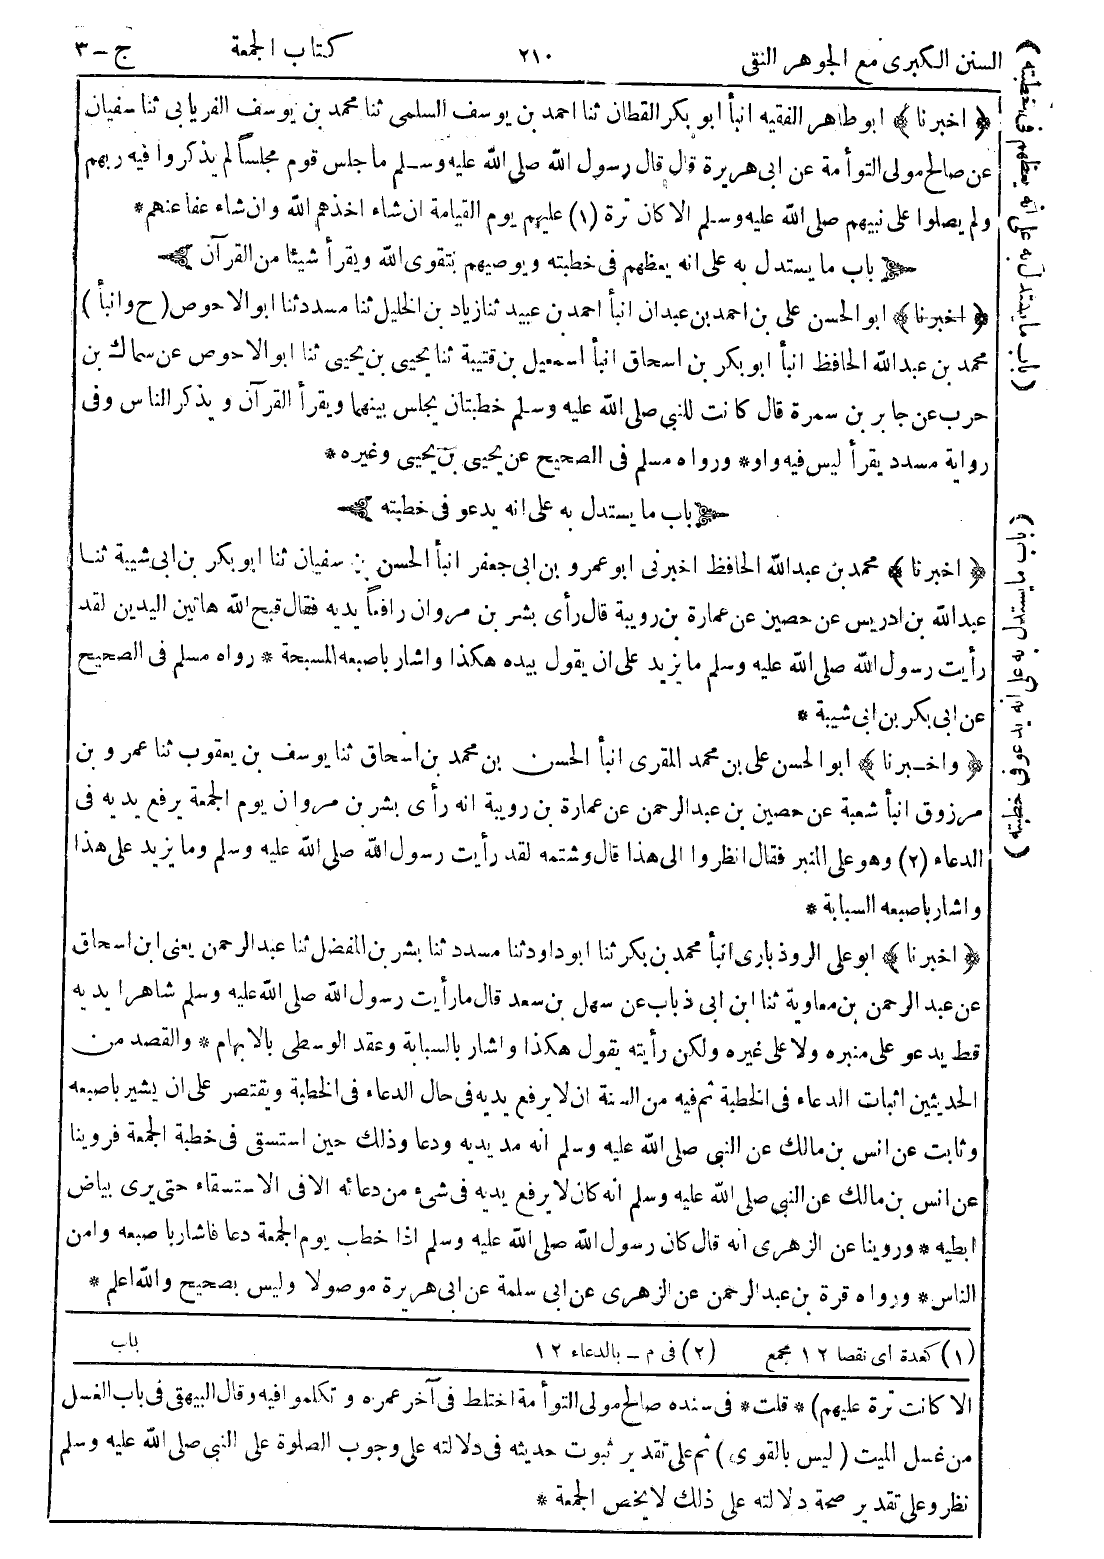 السنن الكبرى مع الجوهر النقى ٢١٠ كتاب الجمعة ج - ٣
﴿ اخبرنا ﴾ ابو طاهر الفقيه انبأ ابو بكر القطان ثنا احمد بن يوسف السلمى ثنا محمد بن يوسف الفريابى ثنا سفيان
عن صالح مولى التوأمة عن ابى هريرة قال قال رسول الله صلى الله عليه وسلم ما جلس قوم مجلساً لم يذكروا فيه ربهم
ولم يصلوا على نبيهم صلى الله عليه وسلم الا كان ترة (١) عليهم يوم القيامة ان شاء اخذهم الله وان شاء عفا عنهم *
باب ما يستدل به على انه يعظهم فى خطبته ويوصيهم بتقوى الله ويقرأ شيئا من القرآن
﴿ اخبرنا ﴾ ابو الحسن على بن احمد بن عبدان انبأ احمد بن عبيد ثنا زياد بن الخليل ثنا مسدد ثنا ابو الاحوص ( ح وانبأ )
محمد بن عبد الله الحافظ انبأ ابو بكر بن اسحاق انبأ اسمعيل بن قتيبة ثنا يحيى بن يحيى ثنا ابو الاحوص عن سماك بن
حرب عن جابر بن سمرة قال كانت للنبى صلى الله عليه وسلم خطبتان يجلس بينهما ويقرأ القرآن ويذكر الناس وفى
رواية مسدد يقرأ ليس فيه واو * ورواه مسلم فى الصحيح عن يحيى بن يحيى وغيره *
باب ما يستدل به على انه يدعو فى خطبته
﴿ اخبرنا ﴾ محمد بن عبد الله الحافظ اخبرنى ابو عمرو بن ابى جعفر انبأ الحسن بن سفيان ثنا ابو بكر بن ابى شيبة ثنا
عبد الله بن ادريس عن حصين عن عمارة بن رويبة قال رأى بشر بن مروان رافعاً يديه فقال قبح الله هاتين اليدين لقد
رأيت رسول الله صلى الله عليه وسلم ما يزيد على ان يقول بيده هكذا واشار باصبعه المسبحة * رواه مسلم فى الصحيح
عن ابى بكر بن ابى شيبة *
﴿ واخبرنا ﴾ ابو الحسن على بن محمد المقرى انبأ الحسن بن محمد بن اسحاق ثنا يوسف بن يعقوب ثنا عمرو بن
مرزوق انبأ شعبة عن حصين بن عبد الرحمن عن عمارة بن رويبة انه رأى بشر بن مروان يوم الجمعة يرفع يديه فى
الدعاء (٢) وهو على المنبر فقال انظروا الى هذا قال وشتمه لقد رأيت رسول الله صلى الله عليه وسلم وما يزيد على هذا
واشار باصبعه السبابة *
﴿ اخبرنا ﴾ ابو على الروذبارى انبأ محمد بن بكر ثنا ابو داود ثنا مسدد ثنا بشر بن المفضل ثنا عبد الرحمن يعنى ابن اسحاق
عن عبد الرحمن بن معاوية ثنا ابن ابى ذباب عن سهل بن سعد قال ما رأيت رسول الله صلى الله عليه وسلم شاهرا يديه
قط يدعو على منبره ولا على غيره ولكن رأيته يقول هكذا واشار بالسبابة وعقد الوسطى بالابهام * والقصد من
الحديثين اثبات الدعاء فى الخطبة ثم فيه من السنة ان لا يرفع يديه فى حال الدعاء فى الخطبة ويقتصر على ان يشير باصبعه
وثابت عن انس بن مالك عن النبى صلى الله عليه وسلم انه مد يديه ودعا وذلك حين استسقى فى خطبة الجمعة فروينا
عن انس بن مالك عن النبى صلى الله عليه وسلم انه كان لا يرفع يديه فى شىء من دعائه الا فى الاستسقاء حتى يرى بياض
ابطيه * وروينا عن الزهرى انه قال كان رسول الله صلى الله عليه وسلم اذا خطب يوم الجمعة دعا فاشار باصبعه وامن
الناس * ورواه قرة بن عبد الرحمن عن الزهرى عن ابى سلمة عن ابى هريرة موصولا وليس بصحيح والله اعلم *
(١) كعدة اى نقصا ١٢ مجمع (٢) فى م - بالدعاء ١٢ باب
الا كانت ترة عليهم) * قلت * فى سنده صالح مولى التوأمة اختلط فى آخر عمره وتكلموا فيه وقال البيهقى فى باب الغسل
من غسل الميت ( ليس بالقوى ) ثم على تقدير ثبوت حديثه فى دلالته على وجوب الصلوة على النبى صلى الله عليه وسلم
نظر وعلى تقدير صحة دلالته على ذلك لا يخص الجمعة *
(باب ما يستدل به على انه يعظهم فى خطبته)
(باب ما يستدل به على انه يدعو فى خطبته)